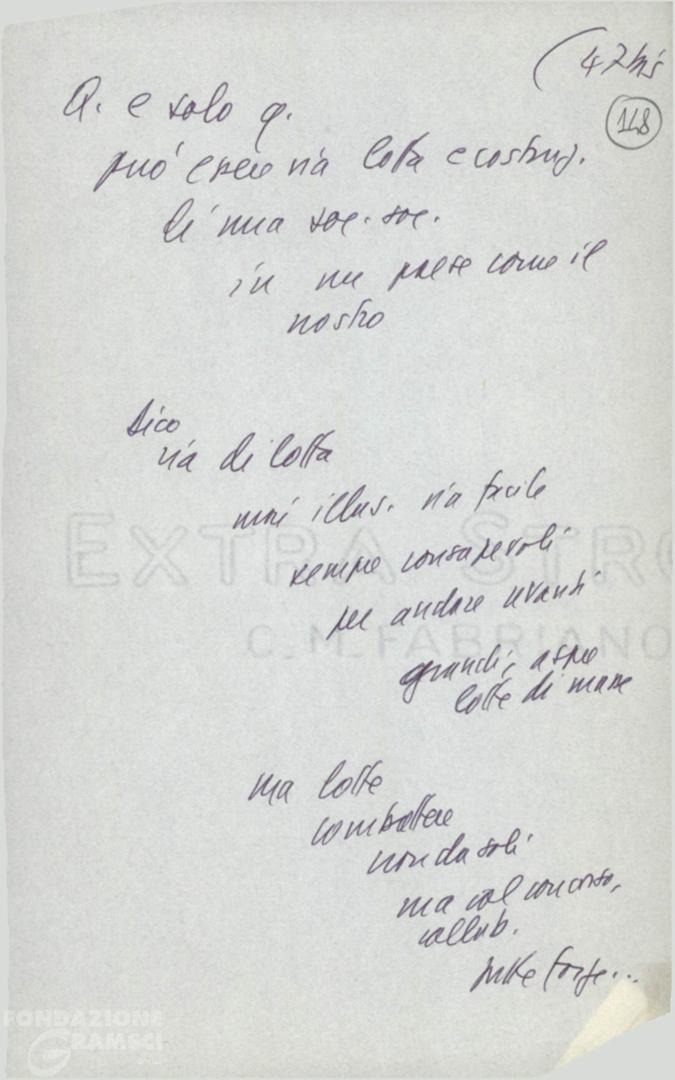 (47bis
148
Q. e solo q.
può essere via lotta e costruz.
di una soc. soc.
in un paese come il
nostro
Dico
via di lotta
mai illus. via facile
sempre consapevoli
per andare avanti
grandi, aspre
lotte di masse
ma lotte
combattere
non da soli
ma col concorso,
collab.
tutte forze...
EXTRA STRO
C.M.FABRIANO
FONDAZIONE
GRAMSCI